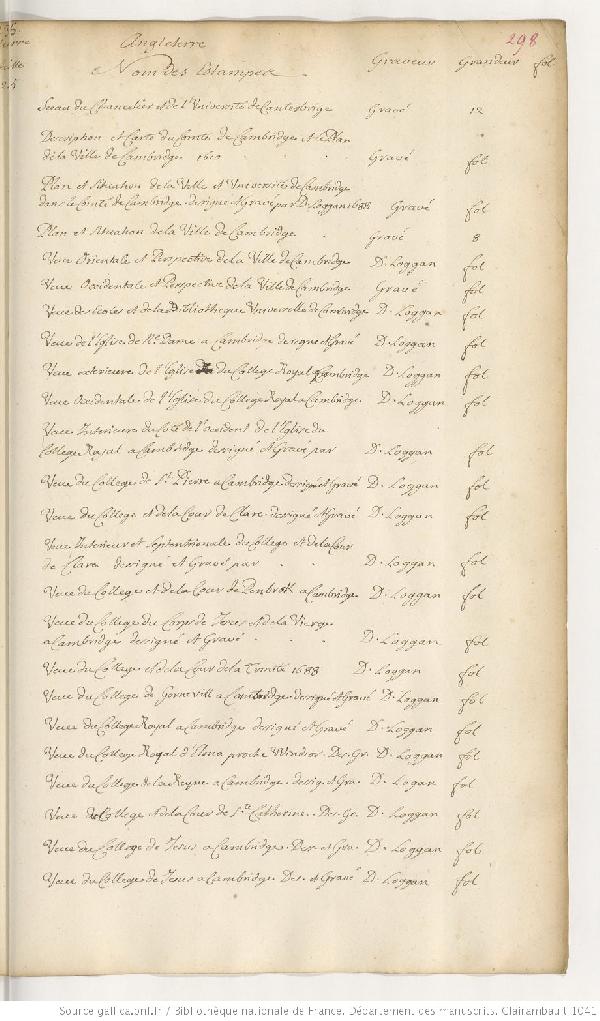 298
Angleterre
Nom Des Estampes Graveur Grandeur fol
Sceau du Chancelier et de l'Université de Cantorbrige Gravé 12
Description et Carte du Comté de Cambridge et le Plan
de la Ville de Cambridge Gravé fol
Plan et Situation de la Ville et Université de Cambridge
dans le Comté de Cambridge designé et gravé par D. Loggan 1688 Gravé fol
Plan et Situation de la Ville de Cambridge Gravé 8
Veue Orientale et Perspective de la Ville de Cambridge D. Loggan fol
Veue Occidentale et Perspective de la Ville de Cambridge Gravé fol
Veue des Ecoles et de la Bibliotheque Universelle de Cambridge D. Loggan fol
Veue de l'Eglise de Ne. Dame a Cambridge designe et Gravé D. Loggan fol
Veue exterieure de l'Eglise du College Royal a Cambridge D. Loggan fol
Veue Occidentale de l'Eglise du College Royal a Cambridge D. Loggan fol
Veue Interieure du Coté de l'occident de l'Eglise du
College Royal a Cambridge designé et Gravé par D. Loggan fol
Veue du College de St. Pierre a Cambridge designé et Gravé D. Loggan fol
Veue du College et de la Cour de Clare designé et Gravé D. Loggan fol
Veue Interieure et Septentrionale du College et de la Cour
de Clare designé et Gravé par D. Loggan fol
Veue du College et de la Cour de Penbrok a Cambridge D. Loggan fol
Veue du College du Corps de Jesus et de la Vierge
a Cambridge designé et Gravé D. Loggan fol
Veue du College et de la Cour de la Trinité 1688 D. Loggan fol
Veue du College de Gonnevill a Cambridge designé et Gravé D. Loggan fol
Veue du College Royal a Cambridge designé et Gravé D. Loggan fol
Veue du College Royal d'Etona proche Windsor. Des. Gr. D. Loggan fol
Veue du College de la Reyne a Cambridge. desig. et Gra. D. Logan fol
Veue du College et de la Cour de Ste. Catherine. Des. Gr. D. Loggan fol
Veue du College de Jesus a Cambridge. Des. et Gra. D. Loggan fol
Veue du College de Jesus a Cambridge. Des. et Gravé D. Loggan fol
Source gallica.bnf.fr / Bibliothèque nationale de France. Département des manuscrits. Clairambault 1041